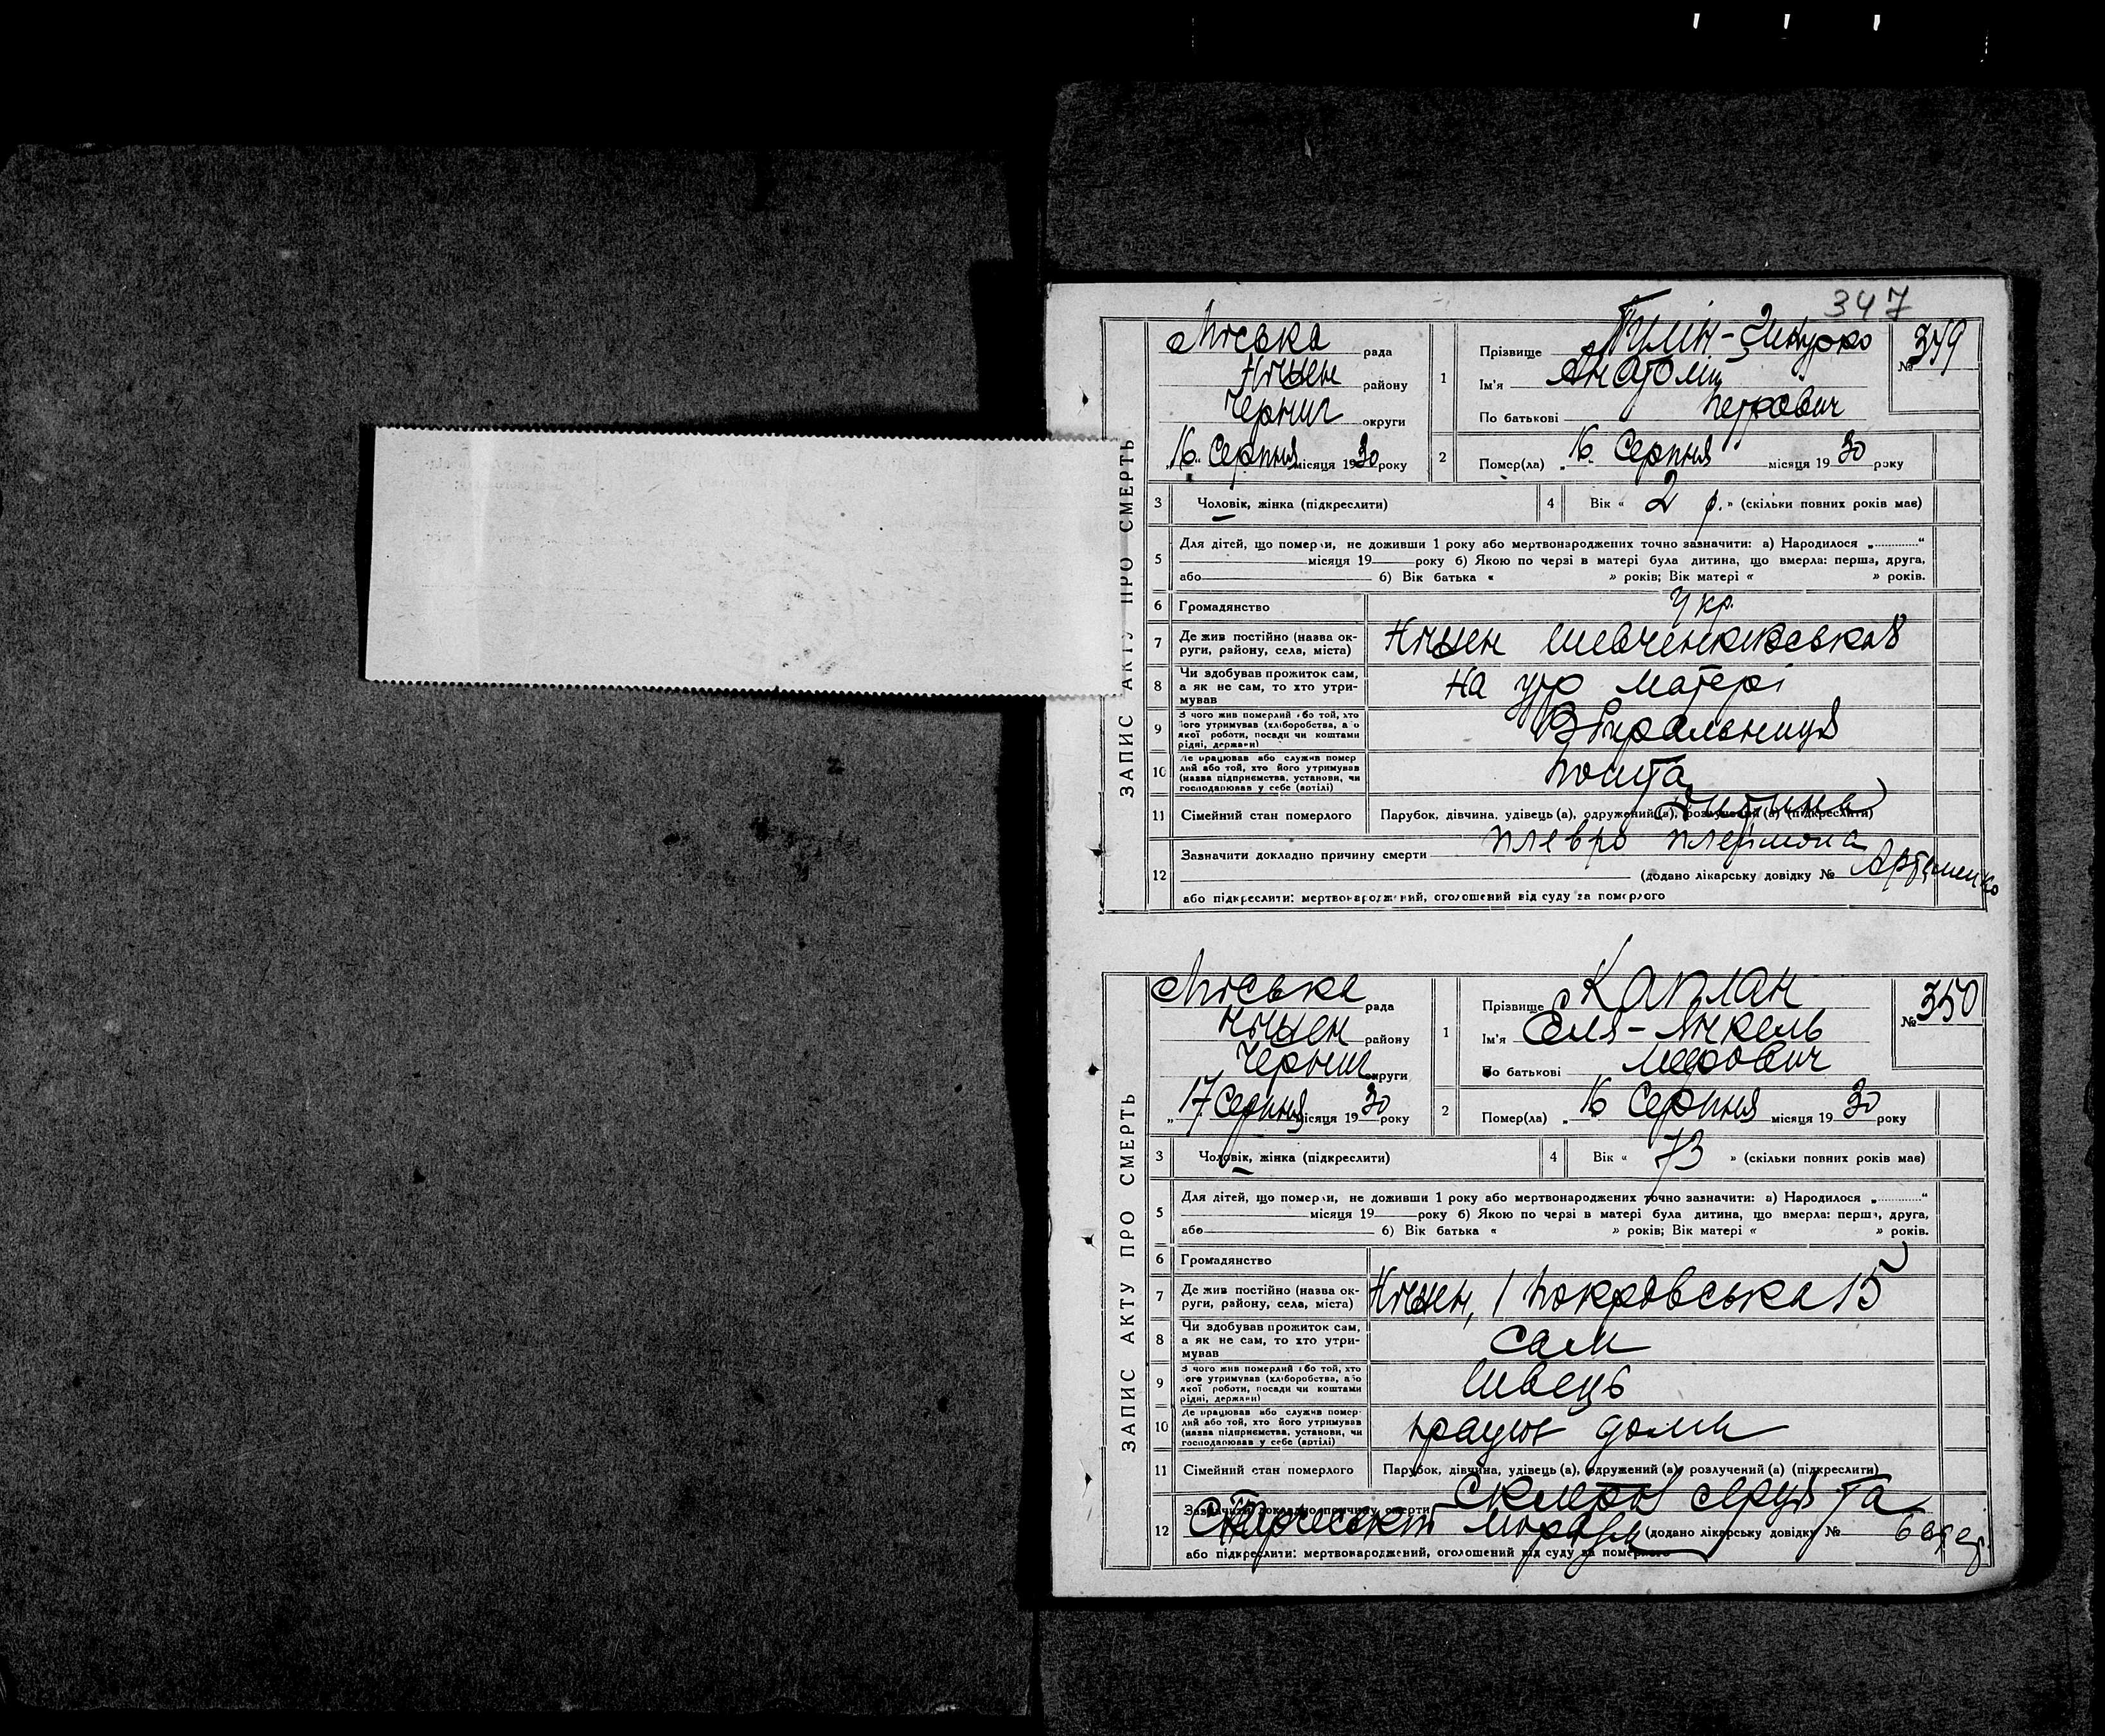 347
ЗАПИС АКТУ ПРО СМЕРТЬ
Міська рада
Ніжен району
Черниг округи
„16“ Серпня місяця 1930 року
1 Прізвище
Ім'я Анатолій
По батькові Петрович
№ 349
2 Помер(ла) „16 Серпня місяця 1930 року
3 Чоловік, жінка (підкреслити)
4 Вік « 2 р. » (скільки повних років має)
5 Для дітей, що померли, не доживши 1 року або мертвонароджених точно зазначити: а) Народилося „ “
місяця 19 року б) Якою по черзі в матері була дитина, що вмерла: перша, друга,
або б) Вік батька « » років; Вік матері « » років.
6 Громадянство Укр.
7 Де жив постійно (назва ок-
руги, району, села, міста) Ніжен Шевченковська 8
8 Чи здобував прожиток сам,
а як не сам, то хто утри-
мував на утр матері
9 З чого жив померлий або той, хто
його утримував (хліборобства, або
якої роботи, посади чи коштами
рідні, держави)
10 Де працював або служив помер
лий або той, хто його утримував
(назва підприємства, установи, чи
господарював у себе (артілі) пошта
11 Сімейний стан померлого Парубок, дівчина, удівець (а), одружений (а), розлучений (а) (підкреслити)
12 Зазначити докладно причину смерти плевро
(додано лікарську довідку № Артеменко
або підкреслити: мертвонароджений, оголошений від суду за померлого
ЗАПИС АКТУ ПРО СМЕРТЬ
Міська рада
Ніжен району
Черниг округи
„17 Серпня місяця 1930 року
1 Прізвище Каплан
Ім'я Еля-Янкель
По батькові Мерович
№ 350
2 Помер(ла) „16 Серпня місяця 1930 року
3 Чоловік, жінка (підкреслити)
4 Вік « 73 » (скільки повних років має)
5 Для дітей, що померли, не доживши 1 року або мертвонароджених точно зазначити: а) Народилося „ “
місяця 19 року б) Якою по черзі в матері була дитина, що вмерла: перша, друга,
або б) Вік батька « » років; Вік матері « » років.
6 Громадянство
7 Де жив постійно (назва ок-
руги, району, села, міста) Ніжен, 1 Покровська 15
8 Чи здобував прожиток сам,
а як не сам, то хто утри-
мував сам
9 З чого жив померлий або той, хто
його утримував (хліборобства, або
якої роботи, посади чи коштами
рідні, держави) швець
10 Де працював або служив помер
лий або той, хто його утримував
(назва підприємства, установи, чи
господарював у себе (артілі) дома
11 Сімейний стан померлого Парубок, дівчина, удівець (а), одружений (а), розлучений (а) (підкреслити)
12 Зазначити докладно причину смерти Склероз серця та
Старческий (додано лікарську довідку №
або підкреслити: мертвонароджений, оголошений від суду за померлого